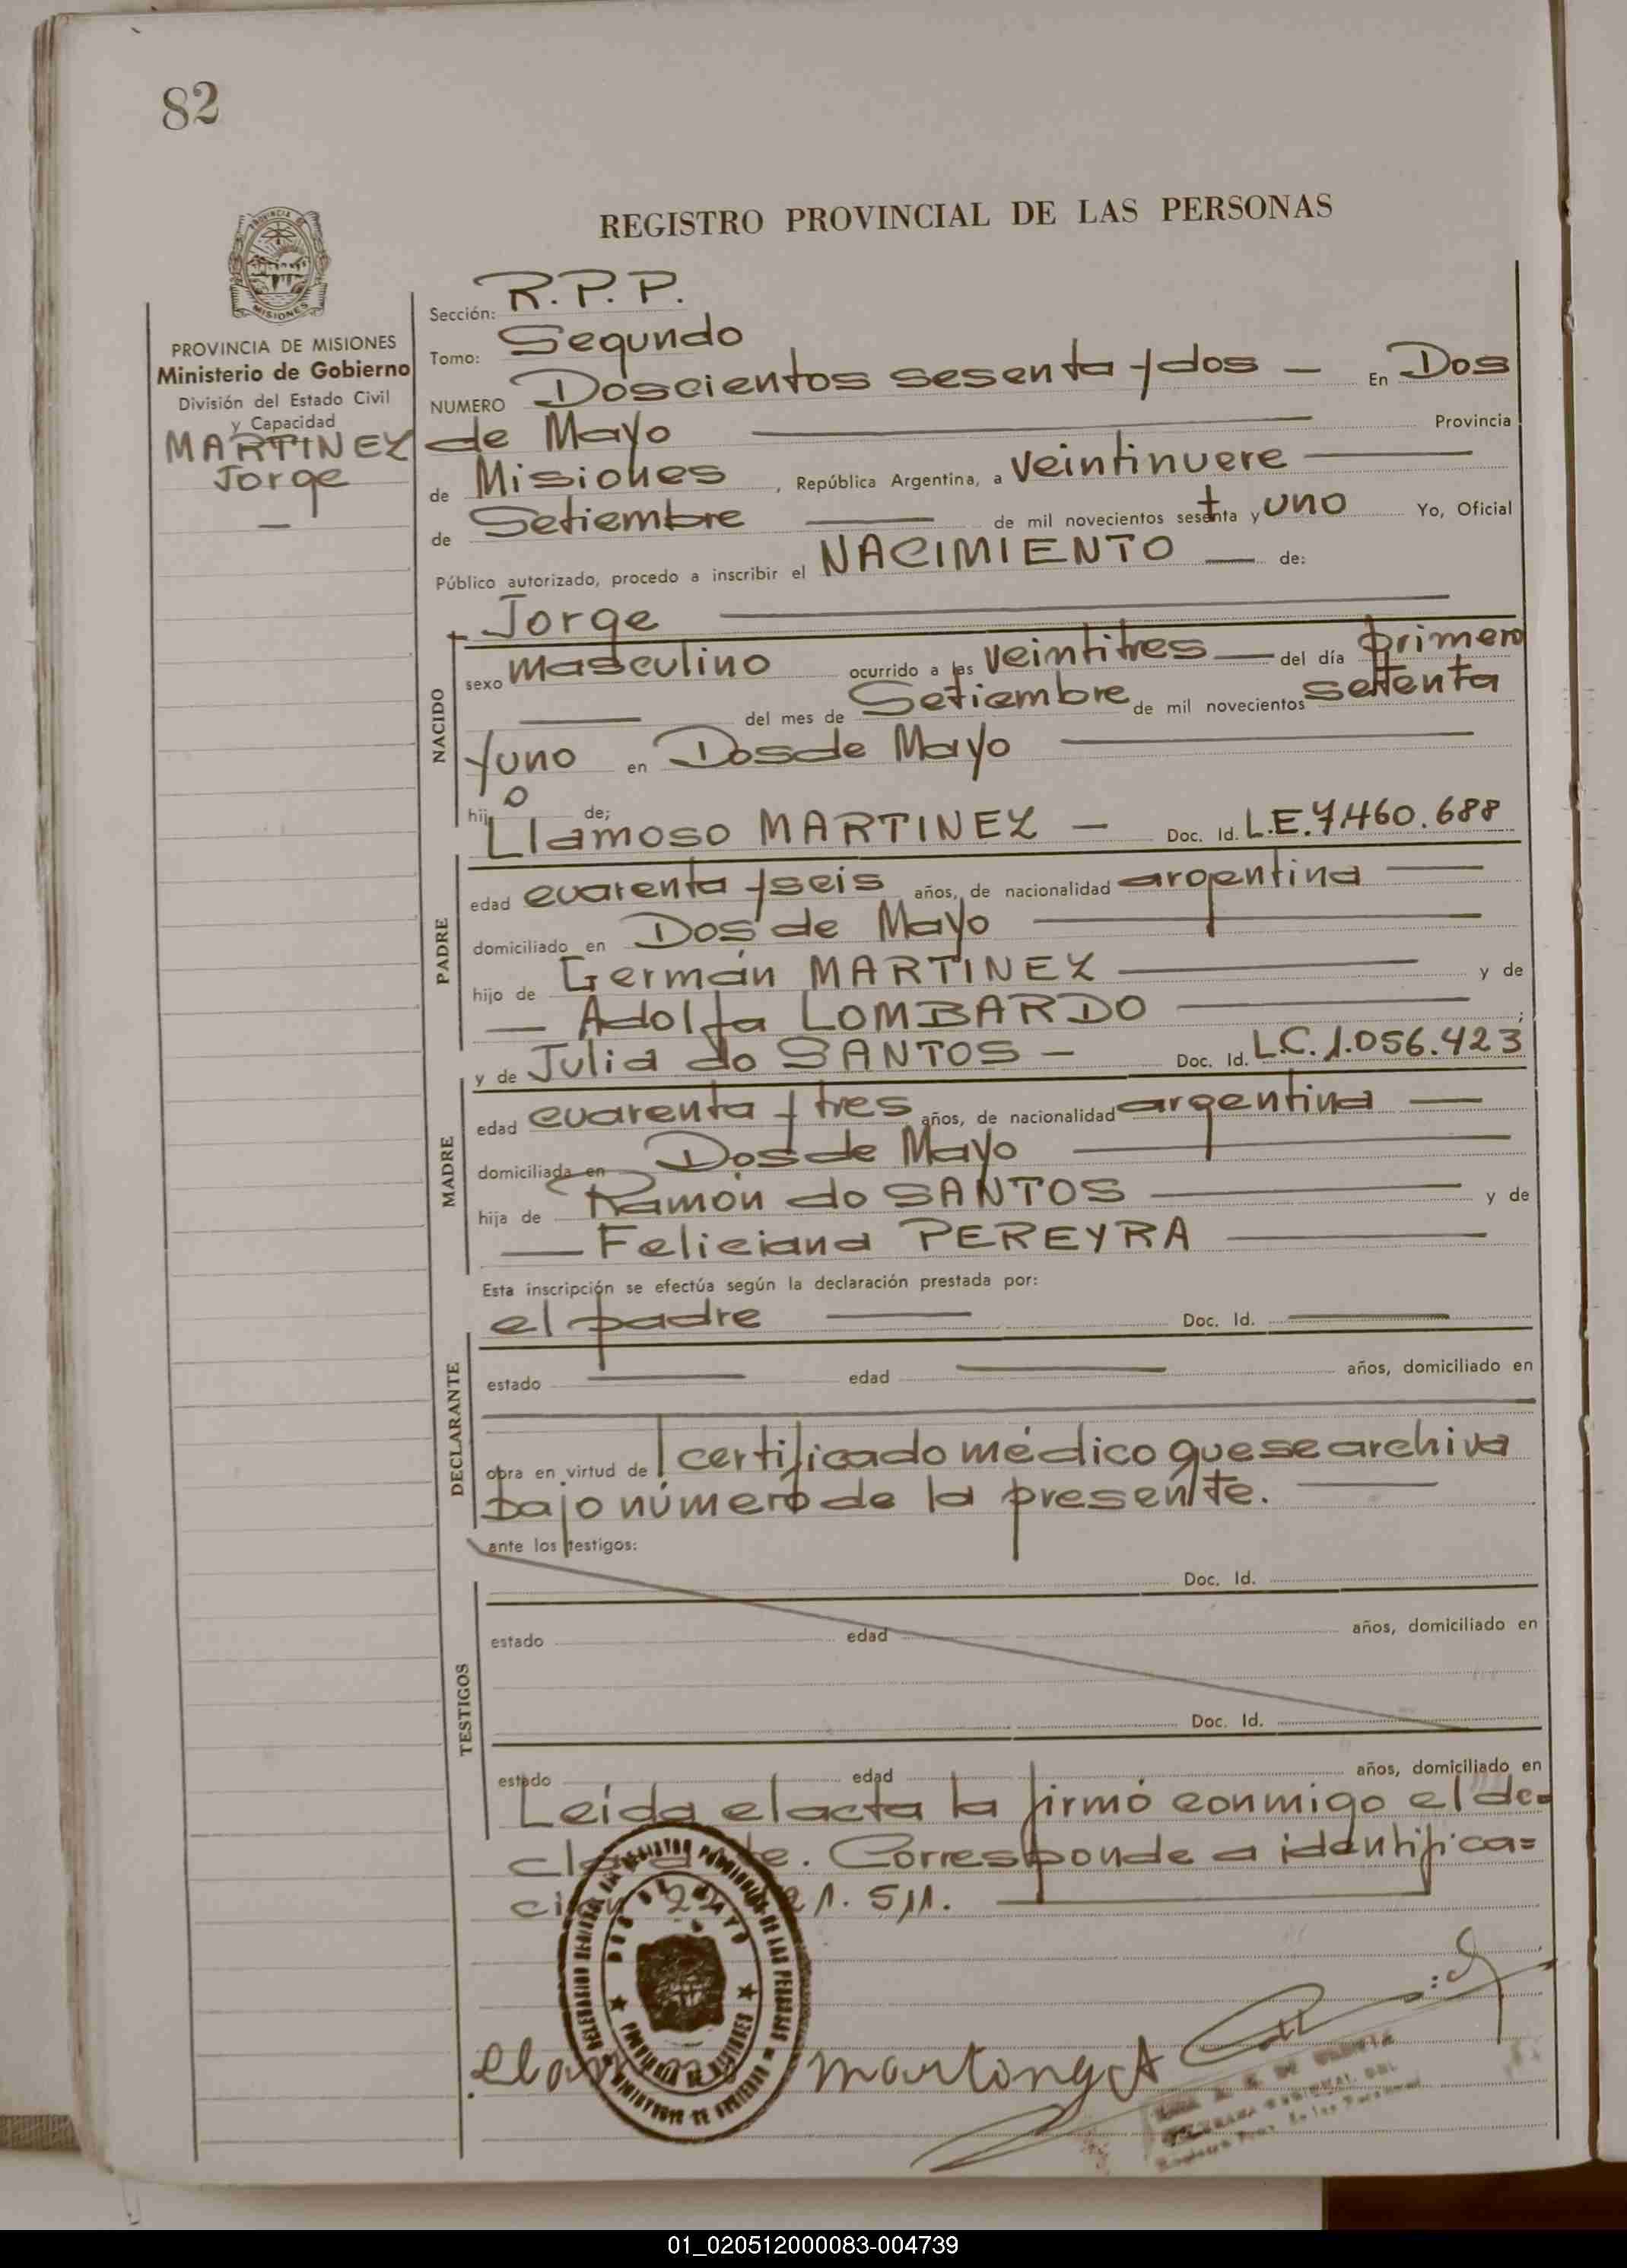 82
REGISTRO PROVINCIAL DE LAS PERSONAS
MISIONES
PROVINCIA DE MISIONES
Ministerio de Gobierno
División del Estado Civil
y Capacidad
MARTINEZ
Jorge
Sección: R.P.P.
Tomo: Segundo
NUMERO Doscientos sesenta y dos — En Dos
de Mayo Provincia
de Misiones, República Argentina, a Veintinueve
de Setiembre de mil novecientos sesenta y uno Yo, Oficial
Público autorizado, procedo a inscribir el NACIMIENTO de:
Jorge
NACIDO
sexo masculino ocurrido a las Veintitres del día primero
del mes de Setiembre de mil novecientos setenta
y uno en Dos de Mayo
hijo de;
Llamoso MARTINEZ — Doc. Id. L.E. 7.460.688
PADRE
edad cuarenta y seis años, de nacionalidad argentina
domiciliado en Dos de Mayo
hijo de Germán MARTINEZ y de
Adolfa LOMBARDO ;
y de Julia do SANTOS — Doc. Id. L.C. 1.056.423
MADRE
edad cuarenta y tres años, de nacionalidad argentina
domiciliada en Dos de Mayo
hija de Ramón do SANTOS y de
Feliciana PEREYRA
Esta inscripción se efectúa según la declaración prestada por:
el padre Doc. Id.
DECLARANTE
estado edad años, domiciliado en
obra en virtud de l certificado médico que se archiva
bajo número de la presente.
ante los testigos:
Doc. Id.
TESTIGOS
estado edad años, domiciliado en
Doc. Id.
estado edad años, domiciliado en
Leída el acta la firmó conmigo el de=
clarante. Corresponde a identifica=
ción 21.511.
DOS DE MAYO
martinez
01_020512000083-004739